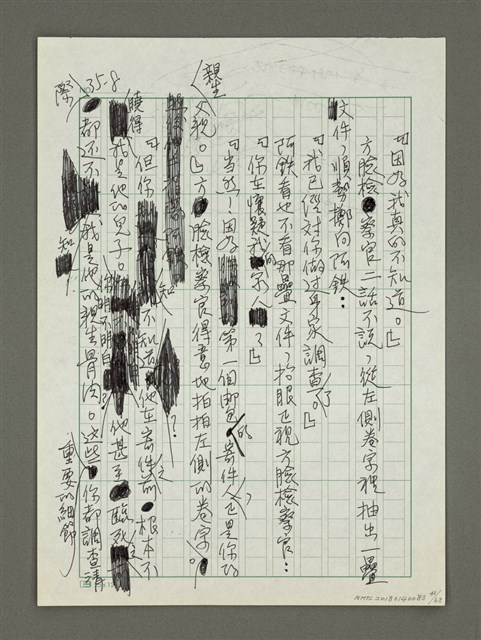 35-8
「因為我真的不知道。」
方臉檢察官二話不說,從左側卷宗裡抽出一疊
文件,順勢擲向阿鉄:
「我已經對你做過身家調查了。」
阿鉄看也不看那疊文件,抬眼正視方臉檢察官:
「你在懷疑我的家人?」
「當然!因為第一個郵包的寄件人正是你的
親生父親。」方臉檢察官得意地拍拍左側的卷宗。
「但你知不知道,他在寄件前根本不
曉得我是他的兒子。他甚至臨死之
際都還不知我是他的親生骨肉。這些你都調查清
重要的細節
NMTL20180140083